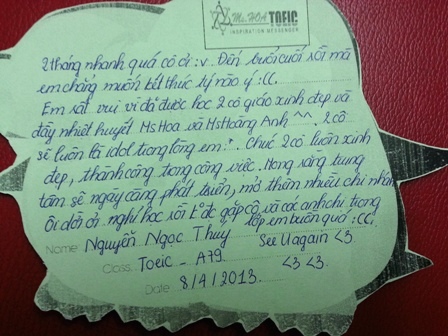 Ms. HOA TOEIC
INSPIRATION MESSENGER
2 tháng nhanh quá cô ơi :v.. Đến buổi cuối rồi mà
em chẳng muốn kết thúc tý nào ý :((.
Em rất vui vì đã được học 2 cô giáo xinh đẹp và
đầy nhiệt huyết Ms Hoa và Ms Hoàng Anh ^^. 2 cô
sẽ luôn là idol trong lòng em :*. Chúc 2 cô luôn xinh
đẹp, thành công trong công việc. Mong rằng trung
tâm sẽ ngày càng phát triển, mở thêm nhiều chi nhánh
Ôi dời ơi nghỉ học rồi k đc gặp cô và các anh chị trong
lớp em buồn quá :((.
Name: Nguyễn Ngọc Thuy See U again <3
Class: Toeic - A79. <3 <3.
Date: 8/4/2013.